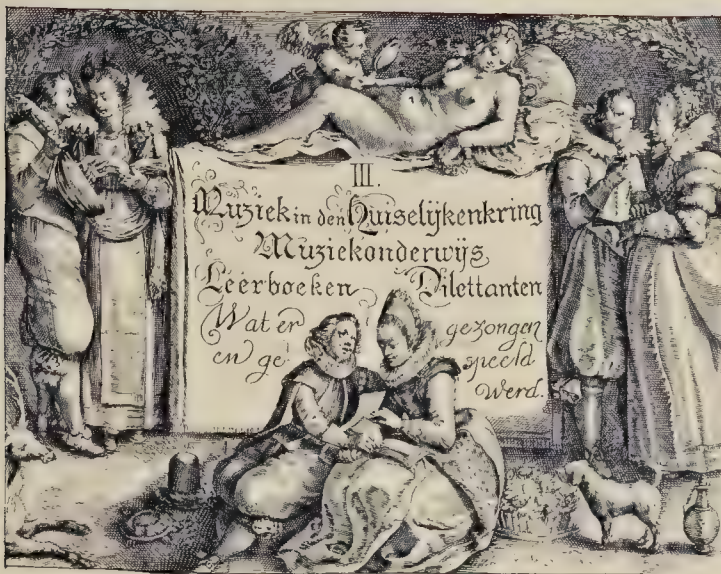 III.
Muziek in den Huiselijkenkring
Muziekonderwijs
Leerboeken Dilettanten
Wat er gezongen
en ge speeld
werd.